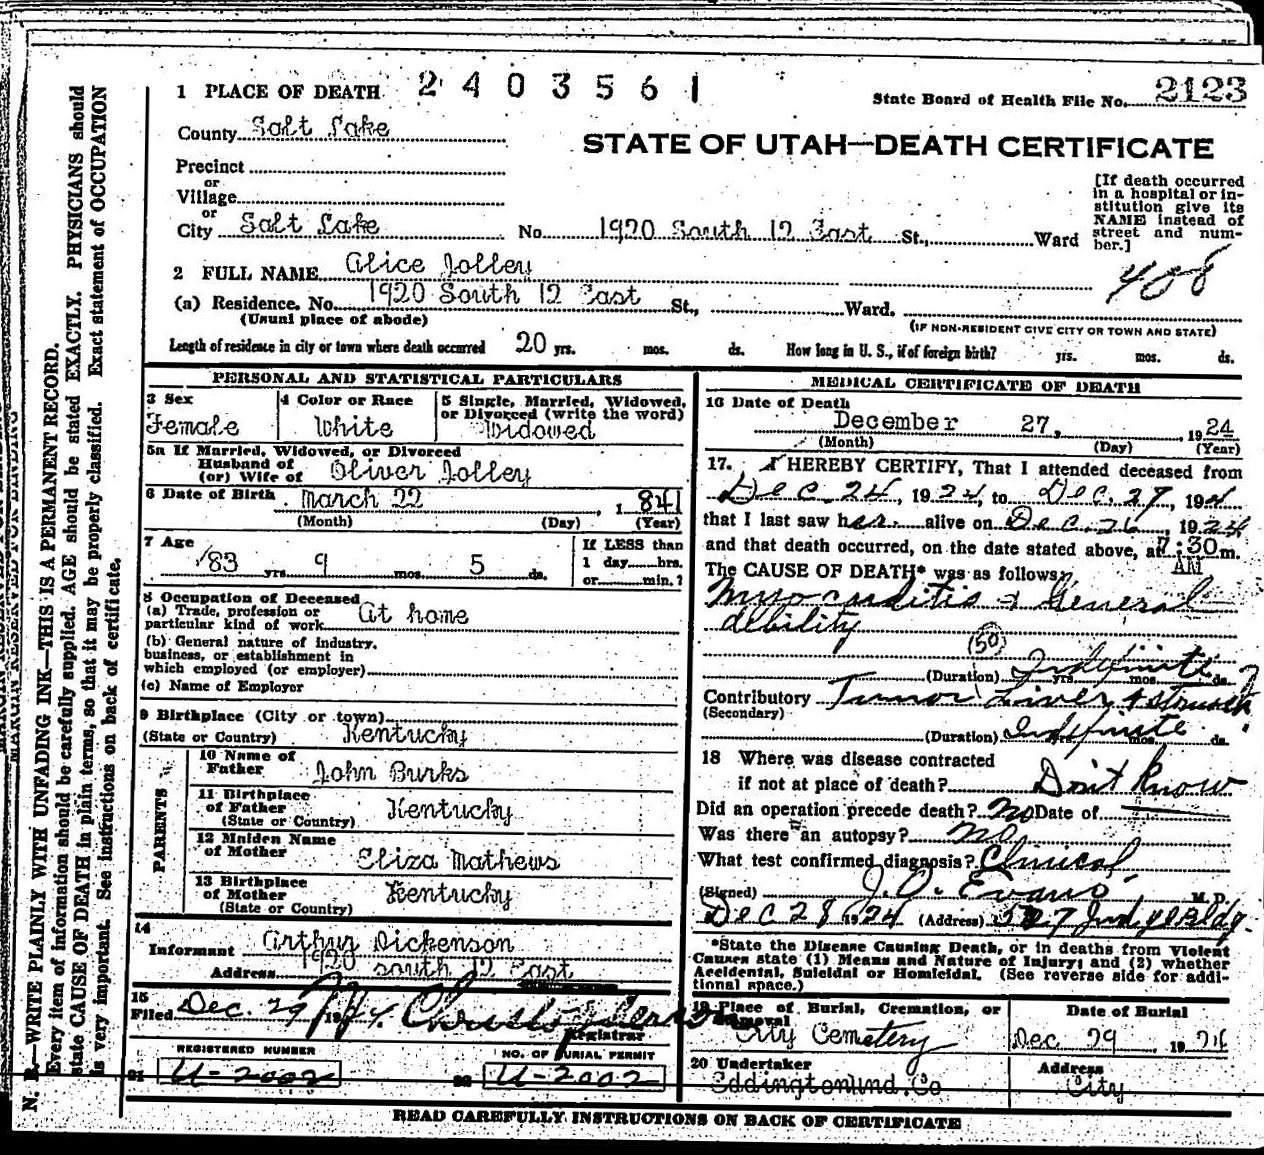 1 PLACE OF DEATH 2403561
State Board of Health File No. 2123
County Salt Lake
STATE OF UTAH—DEATH CERTIFICATE
Precinct
or
Village
or
City Salt Lake No. 1920 South 12 East St., Ward
[If death occurred
in a hospital or in-
stitution give its
NAME instead of
street and num-
ber.]
2 FULL NAME Alice Jolley
408
(a) Residence. No. 1920 South 12 East St., Ward.
(Usual place of abode)
(IF NON-RESIDENT GIVE CITY OR TOWN AND STATE)
Length of residence in city or town where death occurred 20 yrs. mos. ds. How long in U. S., if of foreign birth? yrs. mos. ds.
PERSONAL AND STATISTICAL PARTICULARS
3 Sex
Female
4 Color or Race
White
5 Single, Married, Widowed,
or Divorced (write the word)
Widowed
5a If Married, Widowed, or Divorced
Husband of
(or) Wife of Oliver Jolley
6 Date of Birth March 22, 1841
(Month) (Day) (Year)
7 Age
83 yrs. 9 mos. 5 ds.
If LESS than
1 day......hrs.
or......min.?
8 Occupation of Deceased
(a) Trade, profession or
particular kind of work At home
(b) General nature of industry,
business, or establishment in
which employed (or employer)
(c) Name of Employer
9 Birthplace (City or town)
(State or Country) Kentucky
PARENTS
10 Name of
Father John Burks
11 Birthplace
of Father Kentucky
(State or Country)
12 Maiden Name
of Mother Eliza Mathews
13 Birthplace
of Mother Kentucky
(State or Country)
14
Informant Arthur Dickenson
Address 1920 South 12 East
15
Filed Dec. 29 1924.
Registrar
REGISTERED NUMBER
21 U-2002
NO. OF BURIAL PERMIT
22 U-2002
MEDICAL CERTIFICATE OF DEATH
16 Date of Death
December 27, 1924
(Month) (Day) (Year)
17. I HEREBY CERTIFY, That I attended deceased from
Dec. 24, 1924, to Dec. 27, 1924
that I last saw her alive on Dec. 26, 1924
and that death occurred, on the date stated above, at 7:30 m.
AM
The CAUSE OF DEATH* was as follows:
Myocarditis & General
debility
(50)
(Duration) Indefinite yrs. mos. ds.
Contributory Tumor Liver & stomach ?
(Secondary)
(Duration) Indefinite yrs. mos. ds.
18 Where was disease contracted
if not at place of death? Don't know
Did an operation precede death? no Date of
Was there an autopsy? no
What test confirmed diagnosis? Clinical
(Signed) J. O. Evans M.D.
Dec 28 1924 (Address) Judge Bldg.
*State the Disease Causing Death, or in deaths from Violent
Causes state (1) Means and Nature of Injury; and (2) whether
Accidental, Suicidal or Homicidal. (See reverse side for addi-
tional space.)
19 Place of Burial, Cremation, or
Removal
City Cemetery
Date of Burial
Dec 29, 1926
20 Undertaker
Eddington Und. Co
Address
City
READ CAREFULLY INSTRUCTIONS ON BACK OF CERTIFICATE
N. B.—WRITE PLAINLY WITH UNFADING INK—THIS IS A PERMANENT RECORD.
Every item of information should be carefully supplied. AGE should be stated EXACTLY. PHYSICIANS should
state CAUSE OF DEATH in plain terms, so that it may be properly classified. Exact statement of OCCUPATION
is very important. See instructions on back of certificate.
MARGIN RESERVED FOR BINDING